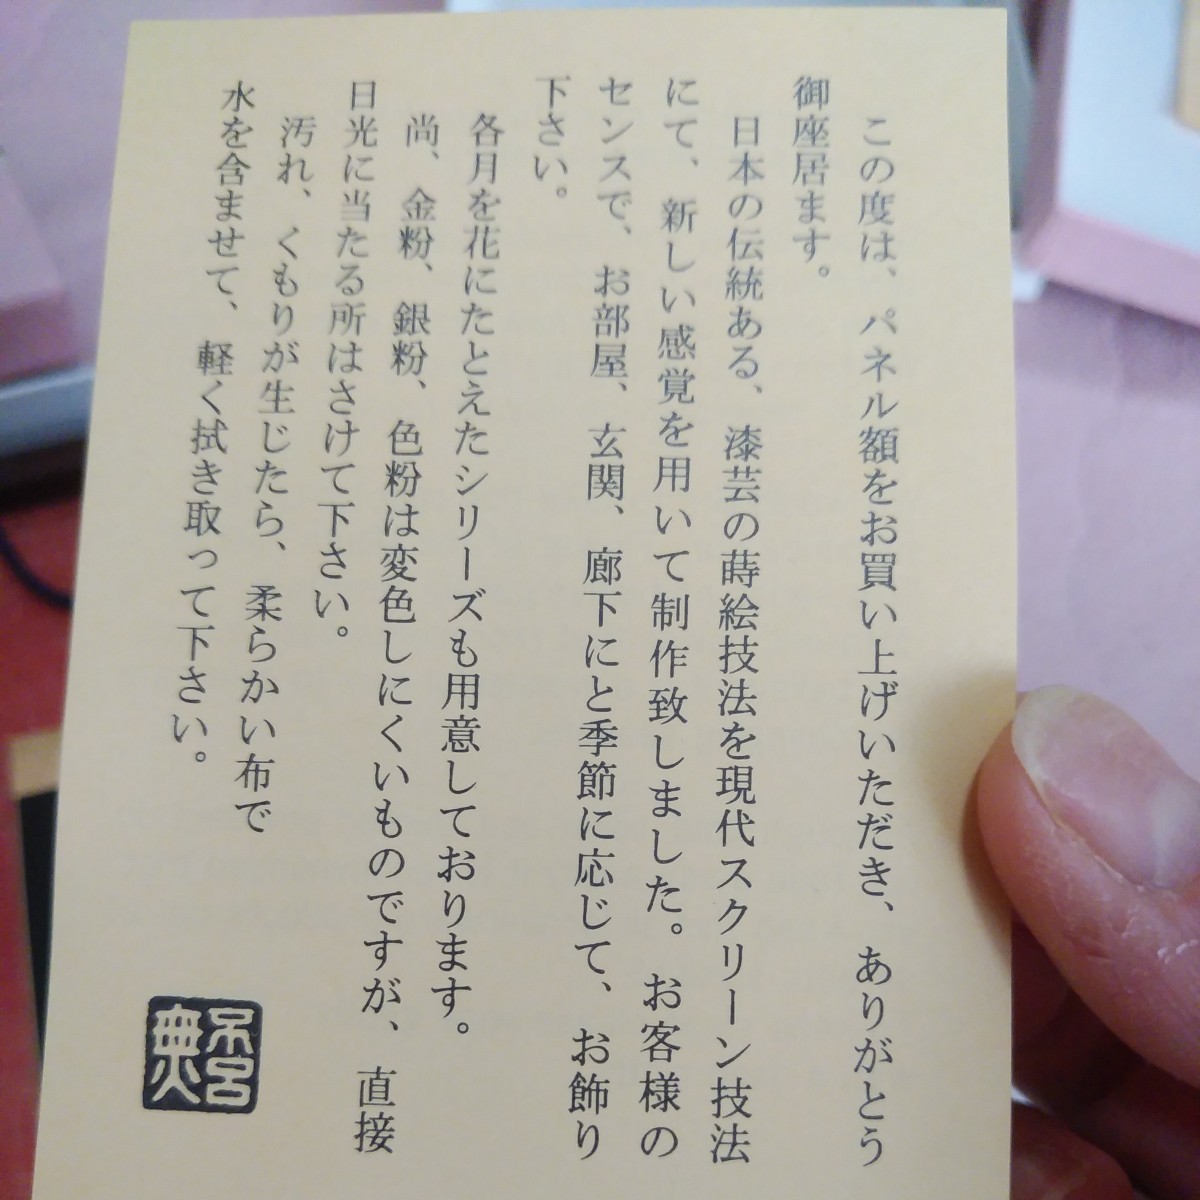 この度は、パネル額をお買い上げいただき、ありがとう
御座居ます。
日本の伝統ある、漆芸の蒔絵技法を現代スクリーン技法
にて、新しい感覚を用いて制作致しました。お客様の
センスで、お部屋、玄関、廊下にと季節に応じて、お飾り
下さい。
各月を花にたとえたシリーズも用意しております。
尚、金粉、銀粉、色粉は変色しにくいものですが、直接
日光に当たる所はさけて下さい。
汚れ、くもりが生じたら、柔らかい布で
水を含ませて、軽く拭き取って下さい。